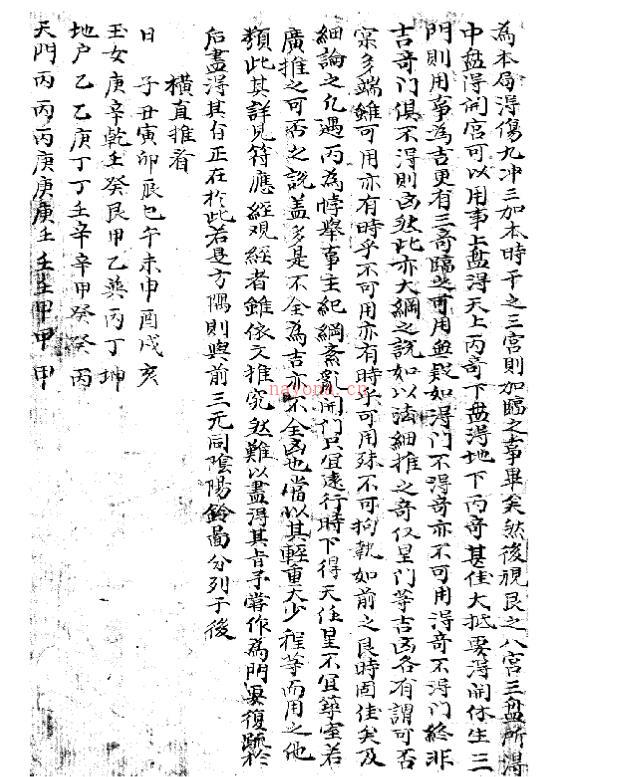 為本局得傷九冲三加本時干之三宮則加臨之事畢矣然後視艮之八宮三盤所得
中盤得開宮可以用事上盤得天上丙奇下盤得地下丙奇甚佳大抵要得開休生三
門則用事為吉更有三奇臨之可用無疑如得門不得奇亦不可用得奇不得門終非
吉奇門俱不得則凶然此亦大綱之說如以法細推之奇仅星門等吉凶各有謂可否
寀多端雖可用亦有時乎不可用亦有時乎可用殊不可拘執如前之艮時固佳矣及
細論之凡遇丙為悖舉事主紀綱紊亂開門只宜遠行時下得天任星不宜築室若
廣推之可否之說蓋多是不全為吉亦不全凶也當以其輕重大少程等而用之他
類此其詳見符應經观經者雖依文推究然難以盡得其旨予嘗作為門要復驗於
后盡得其旨正在於此若是方隅則與前三元同陰陽鈐局分列于後
橫直推看
日 子丑寅卯辰巳午未申酉戌亥
玉女庚辛乾壬癸艮甲乙巽丙丁坤
地户乙乙庚丁丁壬辛辛甲癸癸丙
天門丙丙丙庚庚庚壬壬壬甲甲甲
nayona.cn